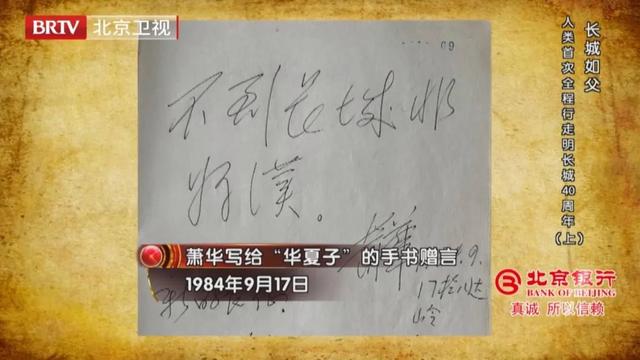 BRTV 北京卫视
09
不到长城非
好漢。
萧华
9.
17于八达
岭
萧华写给“华夏子”的手书赠言
1984年9月17日
长城如父
人类首次全程行走明长城40周年（上）
北京银行
BANK OF BEIJING
真诚 所以信赖